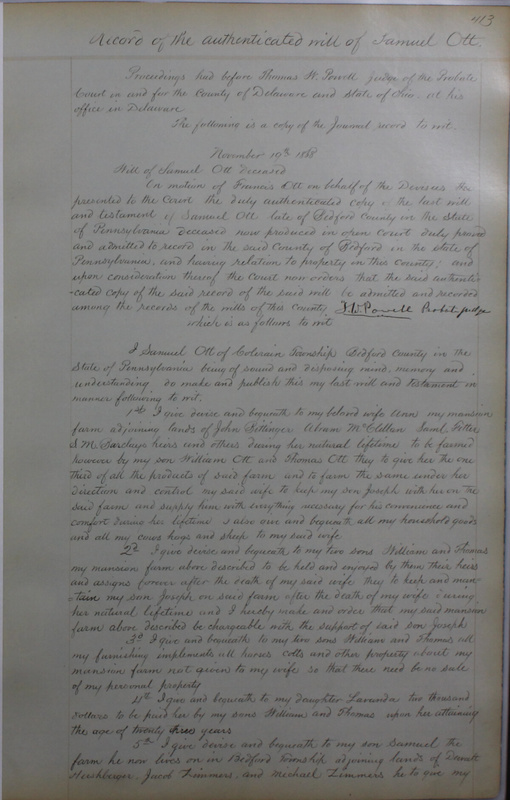 413
Record of the authenticated will of Samuel Ott.
Proceedings had before Thomas W. Powell judge of the Probate
Court in and for the County of Delaware and State of Ohio, at his
office in Delaware
The following is a copy of the Journal record to wit.
November 19th 1868
Will of Samuel Ott deceased
On motion of Francis Ott on behalf of the Devisees
presented to the Court the duly authenticated copy of the last will
and testament of Samuel Ott late of Bedford County in the State
of Pennsylvania deceased now produced in open Court duly proved
and admitted to record in the said County of Bedford in the state of
Pennsylvania, and having relation to property in this County; and
upon consideration thereof the Court now orders that the said authenti-
-cated copy of the said record of the said will be admitted and recorded
among the records of the wills of this County T. W. Powell Probate judge
which is as follows to wit
I Samuel Ott of Colerain Township Bedford County in the
State of Pennsylvania being of sound and disposing mind, memory and
understanding do make and publish this my last will and testament in
manner following to wit.
1st I give devise and bequeath to my beloved wife Ann my mansion
farm adjoining lands of John Abram McClellan Saml
heirs and others during her natural lifetime to be farmed
however by my son William Ott and Thomas Ott they to give her the one
third of all the products of said farm and to farm the same under her
direction and control my said wife to keep my son Joseph with her on the
said farm and supply him with everything necessary for his convenience and
comfort during her lifetime I also give and bequeath all my household goods
and all my cows hogs and sheep to my said wife
2d I give devise and bequeath to my two sons William and Thomas
my mansion farm above described to be held and enjoyed by them their heirs
and assigns forever after the death of my said wife they to keep and main-
-tain my son Joseph on said farm after the death of my wife during
her natural lifetime and I hereby make and order that my said mansion
farm above described be chargeable with the support of said son Joseph
3d I give and bequeath to my two sons William and Thomas all
my furnishing implements all horses colts and other property about my
mansion farm not given to my wife so that there need be no sale
of my personal property
4th I give and bequeath to my daughter Lavanda two thousand
dollars to be paid her by my sons William and Thomas upon her attaining
the age of twenty three years
5th I give devise and bequeath to my son Samuel the
farm he now lives on in Bedford Township adjoining lands of
Hershberger, Jacob Zimmers, and Michael Zimmers he to give my